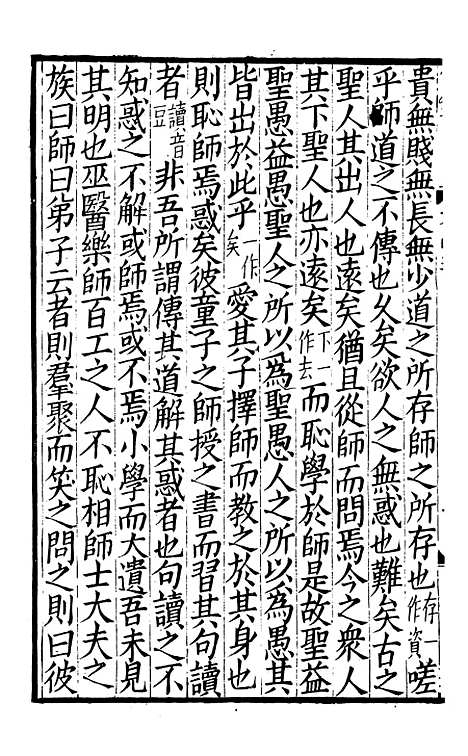 貴無賤無長無少道之所存師之所存也存一作資嗟
乎師道之不傳也久矣欲人之無惑也難矣古之
聖人其出人也遠矣猶且從師而問焉今之衆人
其下聖人也亦遠矣下一作去而恥學於師是故聖益
聖愚益愚聖人之所以為聖愚人之所以為愚其
皆出於此乎一作矣愛其子擇師而教之於其身也
則恥師焉惑矣彼童子之師授之書而習其句讀
者讀音豆非吾所謂傳其道解其惑者也句讀之不
知惑之不解或師焉或不焉小學而大遺吾未見
其明也巫醫樂師百工之人不恥相師士大夫之
族曰師曰弟子云者則羣聚而笑之問之則曰彼